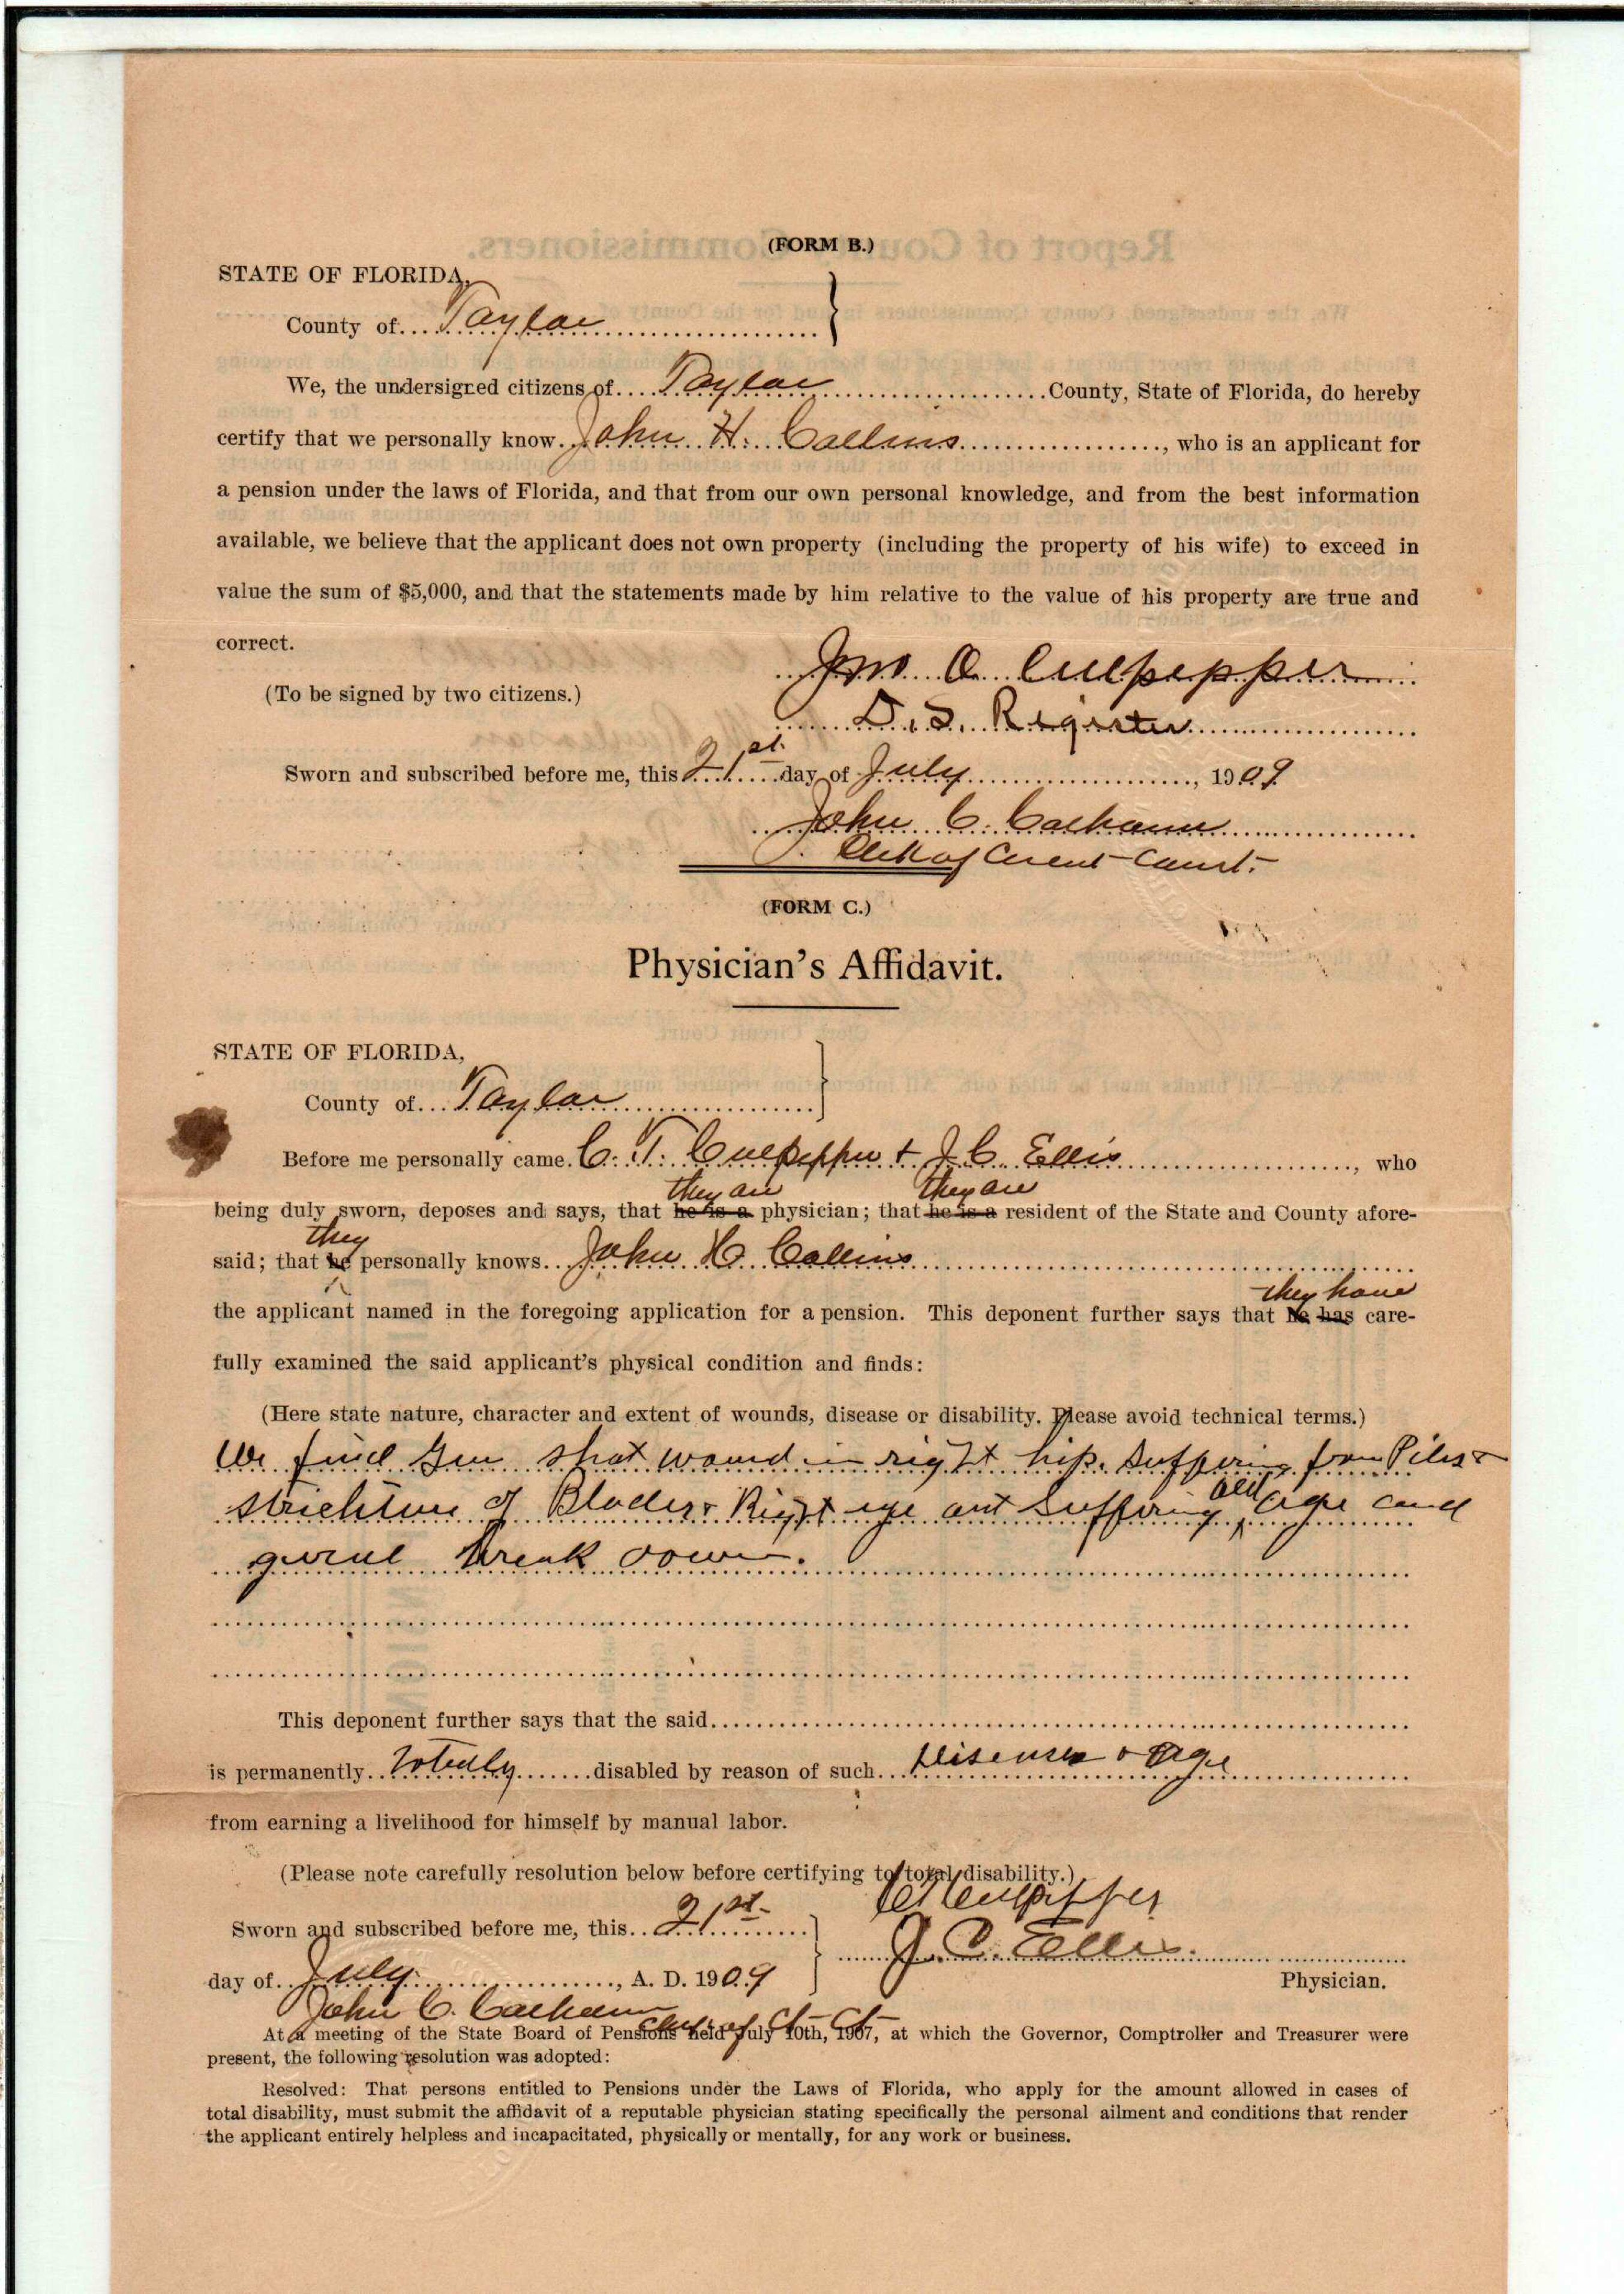 (FORM B.)
STATE OF FLORIDA,
County of....Taylor....
We, the undersigned citizens of....Taylor....County, State of Florida, do hereby
certify that we personally know...John H. Collins...., who is an applicant for
a pension under the laws of Florida, and that from our own personal knowledge, and from the best information
available, we believe that the applicant does not own property (including the property of his wife) to exceed in
value the sum of $5,000, and that the statements made by him relative to the value of his property are true and
correct.
Jno. O. Culpepper
(To be signed by two citizens.)
D. S. Register
Sworn and subscribed before me, this 21st day of July, 1909
John C. Calhoun
Clerk of Circuit Court.
(FORM C.)
Physician's Affidavit.
STATE OF FLORIDA,
County of...Taylor
Before me personally came. C. T. Culpepper + J. C. Ellis, who
they are they are
being duly sworn, deposes and says, that he is a physician; that he is a resident of the State and County afore-
they
said; that he personally knows...John H Collins
they have
the applicant named in the foregoing application for a pension. This deponent further says that he has care-
fully examined the said applicant's physical condition and finds:
(Here state nature, character and extent of wounds, disease or disability. Please avoid technical terms.)
We find Gun shot wound in right hip. Suffering from Piles +
of Right eye out Suffering old age and
break down.
This deponent further says that the said
is permanently..totally..disabled by reason of such...Diseases + age
from earning a livelihood for himself by manual labor.
(Please note carefully resolution below before certifying to total disability.)
Culpepper
Sworn and subscribed before me, this..21st
J. C. Ellis.
day of..July, A. D. 1909
Physician.
John C. Calhoun
Clerk of Ct. Ct.
At a meeting of the State Board of Pensions held July 10th, 1907, at which the Governor, Comptroller and Treasurer were
present, the following resolution was adopted:
Resolved: That persons entitled to Pensions under the Laws of Florida, who apply for the amount allowed in cases of
total disability, must submit the affidavit of a reputable physician stating specifically the personal ailment and conditions that render
the applicant entirely helpless and incapacitated, physically or mentally, for any work or business.